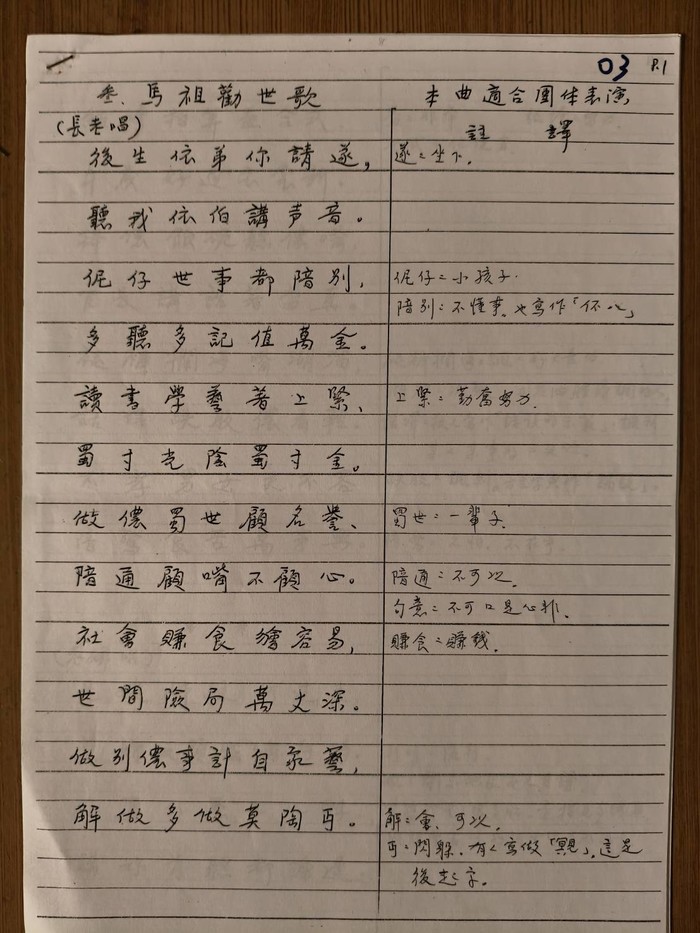 03 P.1
叁、馬祖勸世歌 本曲適合團体表演
(長老唱) 註譯
後生依弟你請遂, 遂:坐下.
聽我依伯講声音。
伲仔世事都陪別, 伲仔:小孩子.
陪別:不懂事,也寫作「伓八」
多聽多記值萬金。
讀書學藝著上緊、 上緊:勤奮努力.
蜀寸光陰蜀寸金。
做儂蜀世顧名譽、 蜀世:一輩子.
陪通顧嘴不顧心。 陪通:不可以.
句意:不可口是心非.
社會賺食獪容易, 賺食:賺錢.
世間險局萬丈深。
做別儂事計自家藝,
解做多做莫陶丏。 解:會、可以.
丏:閃躲.有人寫做「覭」,這是
後起字.